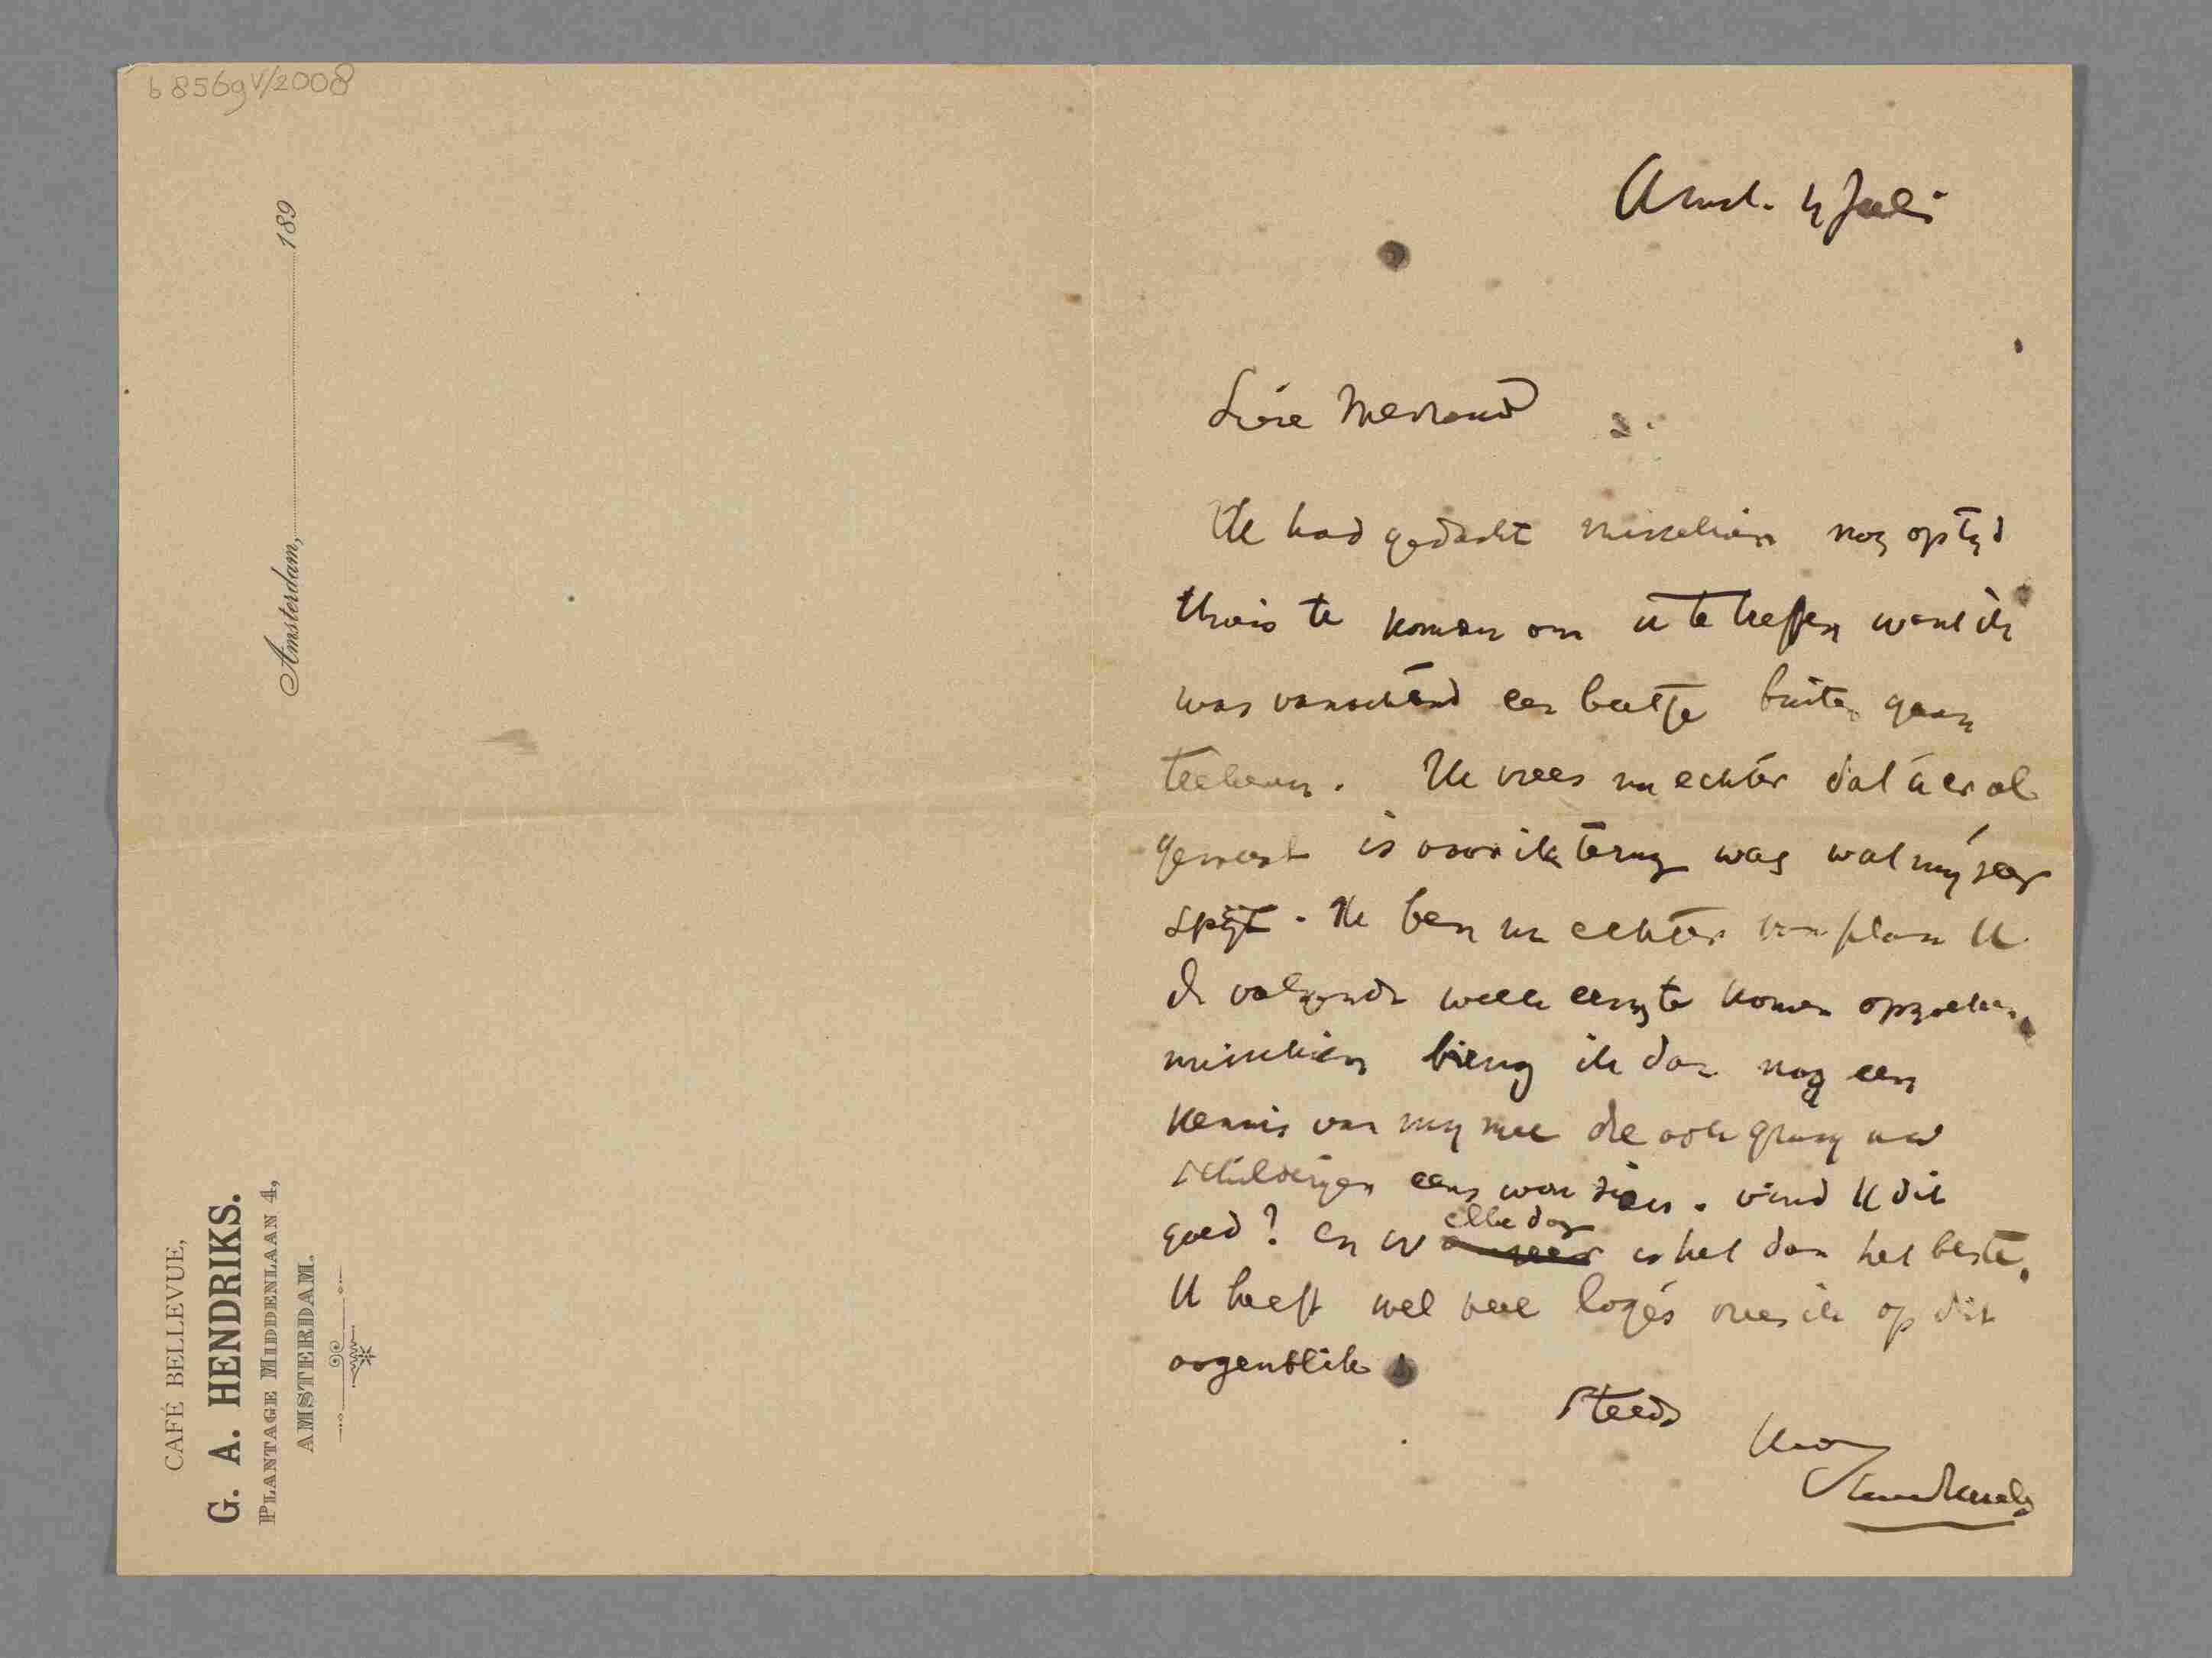 b8569V/2008
Amsterdam, 189
CAFÉ BELLEVUE,
G. A. HENDRIKS.
PLANTAGE MIDDENLAAN 4,
AMSTERDAM.
Amst. 4 Juli
Lieve Mevrouw
Ik had gedacht misschien nog op tijd
thuis te komen om u te treffen want ik
was vanochtend een beetje buiten gaan
teekenen. Ik vrees nu echter dat u er al
geweest is voor ik terug was wat mij zeer
spijt. Ik ben nu echter van plan U
de volgende week eens te komen opzoeken,
misschien breng ik dan nog een
kennis van mij mee die ook graag uw
schilderijen eens wou zien. vind U dit
goed? en welke dag is het dan het beste.
U heeft wel veel logés vrees ik op dit
oogenblik
steeds
Uw